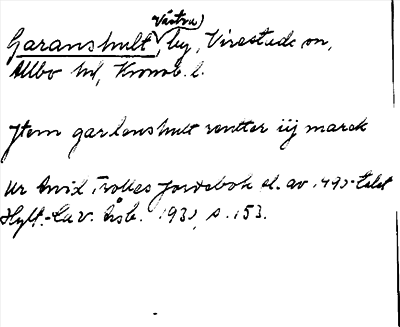 Västra)
Garanshult, by, Virestads sn,
Allbo hd, Kronob. l.
Jtem garlanshult rentter iij marck
Ur Arvid Trolles jordebok sl. av 1490-talet
Hylt.-Cav. Årsb. 1937, s. 153.